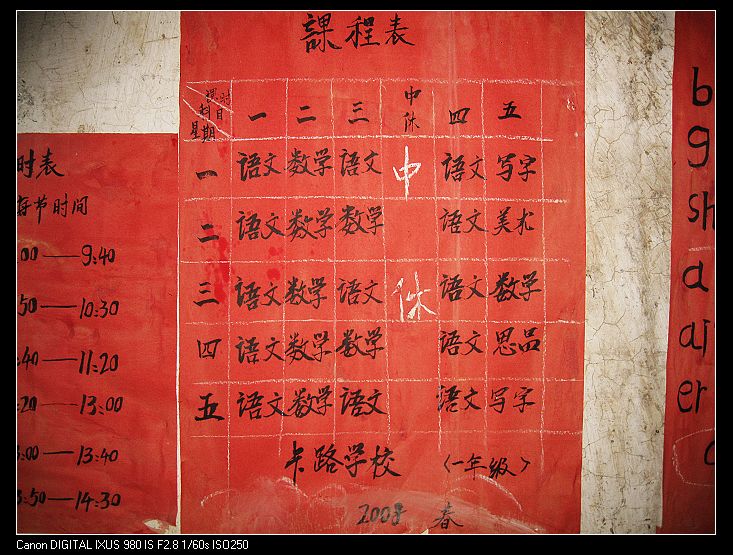 课程表
课时
科目
星期
一 二 三 中休 四 五
一 语文 数学 语文 中 语文 写字
二 语文 数学 数学 语文 美术
三 语文 数学 语文 休 语文 数学
四 语文 数学 数学 语文 思品
五 语文 数学 语文 语文 写字
卡路学校 〈一年级〉
2008 春
时表
每节时间
00—9:40
50—10:30
:40—11:20
20—13:00
:00—13:40
:50—14:30
b
g
sh
a
ai
er
Canon DIGITAL IXUS 980 IS F2.8 1/60s ISO250